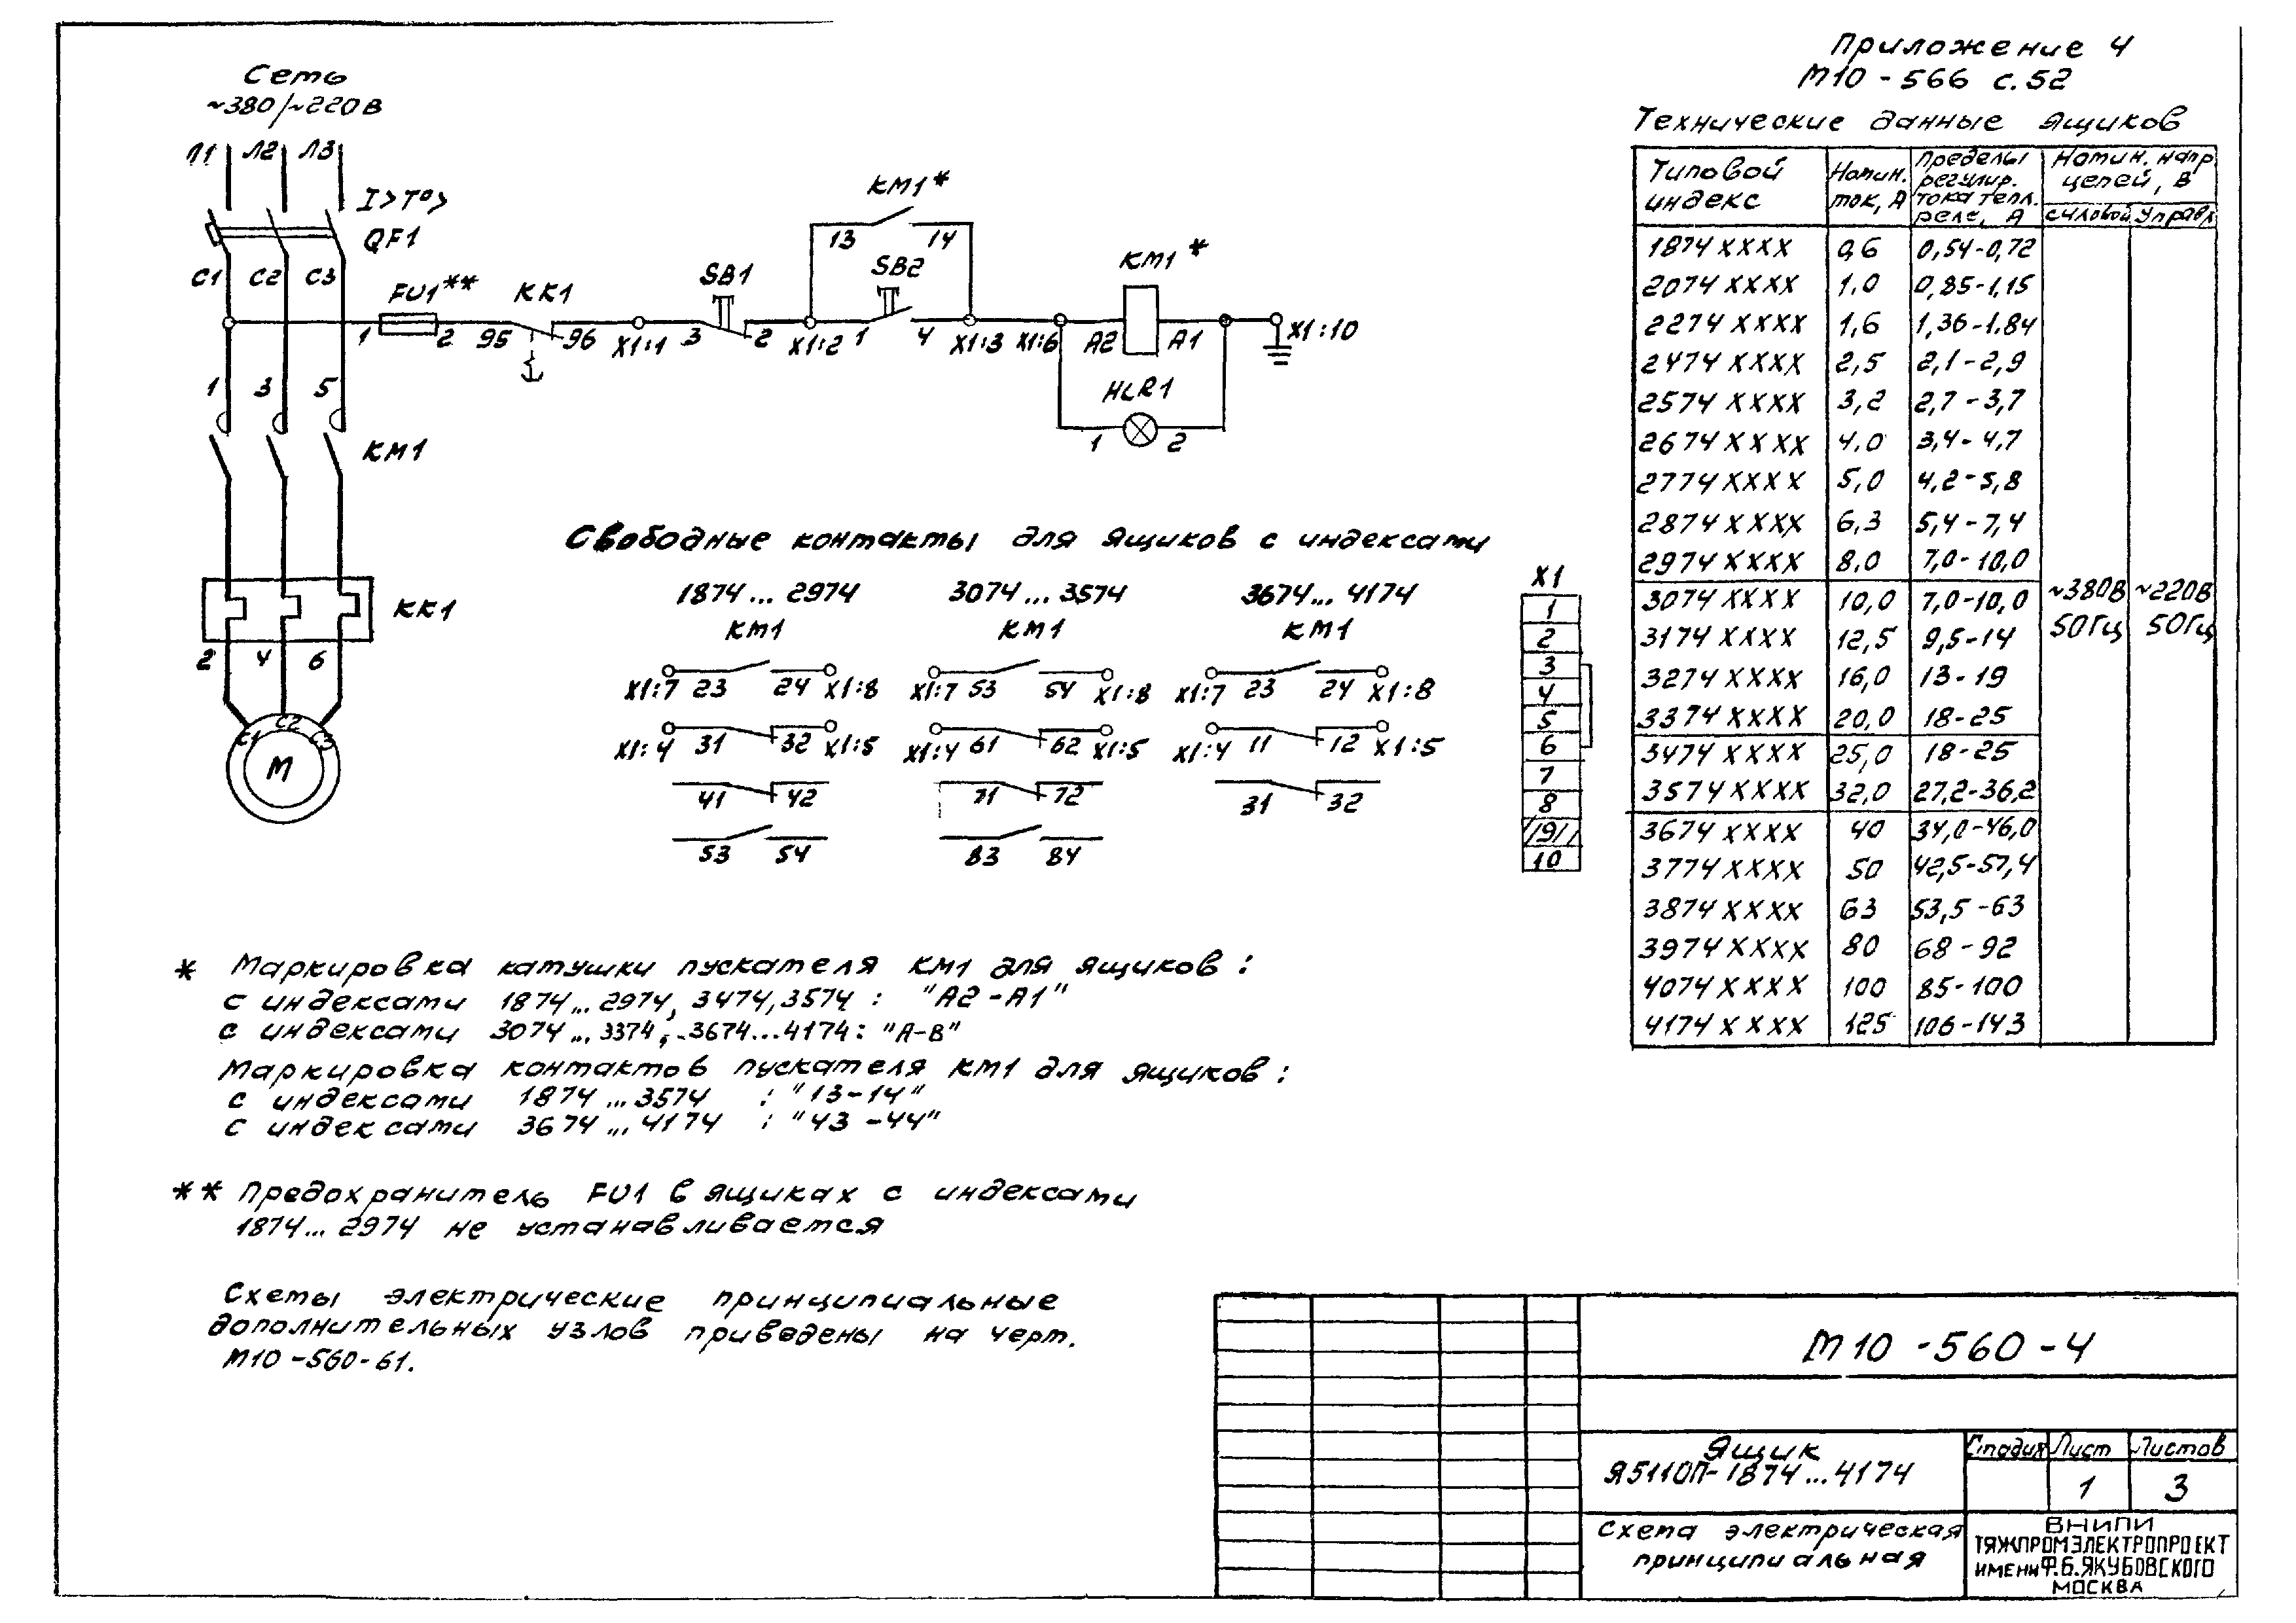 Приложение 4
М10-566 с.52
Сеть
~380/~220В
Л1 Л2 Л3
I>T°>
QF1
C1 C2 C3
FU1**
КК1
SB1
КМ1*
13 14
SB2
КМ1*
1 2 95 96 X1:1 3 2 X1:2 1 4 X1:3 X1:6 A2 A1 X1:10
HLR1
1 2
1 3 5
КМ1
КК1
2 4 6
C1 C2 C3
М
Свободные контакты для ящиков с индексами
1874... 2974 3074... 3574 3674... 4174
КМ1 КМ1 КМ1
X1:7 23 24 X1:8 X1:7 53 54 X1:8 X1:7 23 24 X1:8
X1:4 31 32 X1:5 X1:4 61 62 X1:5 X1:4 11 12 X1:5
41 42 71 72 31 32
53 54 83 84
X1
1
2
3
4
5
6
7
8
9
10
Технические данные ящиков
Типовой индекс Номин. ток, А Пределы регулир. тока тепл. реле, А Номин. напр. цепей, В
силовой управл
1874XXXX 0,6 0,54-0,72
2074XXXX 1,0 0,85-1,15
2274XXXX 1,6 1,36-1.84
2474XXXX 2,5 2,1-2,9
2574XXXX 3,2 2,7-3,7
2674XXXX 4,0 3,4-4,7
2774XXXX 5,0 4,2-5,8
2874XXXX 6,3 5,4-7,4
2974XXXX 8,0 7,0-10,0
3074XXXX 10,0 7,0-10,0 ~380В ~220В
3174XXXX 12,5 9,5-14 50Гц 50Гц
3274XXXX 16,0 13-19
3374XXXX 20,0 18-25
3474XXXX 25,0 18-25
3574XXXX 32,0 27,2-36,2
3674XXXX 40 34,0-46,0
3774XXXX 50 42,5-57,4
3874XXXX 63 53,5-63
3974XXXX 80 68-92
4074XXXX 100 85-100
4174XXXX 125 106-143
* Маркировка катушки пускателя КМ1 для ящиков:
с индексами 1874... 2974, 3474,3574: "А2-А1"
с индексами 3074... 3374, 3674...4174: "А-В"
Маркировка контактов пускателя КМ1 для ящиков:
с индексами 1874...3574 : "13-14"
с индексами 3674...4174 : "43-44"
** Предохранитель FU1 в ящиках с индексами
1874... 2974 не устанавливается
Схемы электрические принципиальные
дополнительных узлов приведены на черт.
М10-560-61.
М10-560-4
Ящик
Я5110П-1874...4174
Стадия Лист Листов
1 3
Схема электрическая
принципиальная
ВНИПИ
ТЯЖПРОМЭЛЕКТРОПРОЕКТ
ИМЕНИ Ф.Б.ЯКУБОВСКОГО
МОСКВА